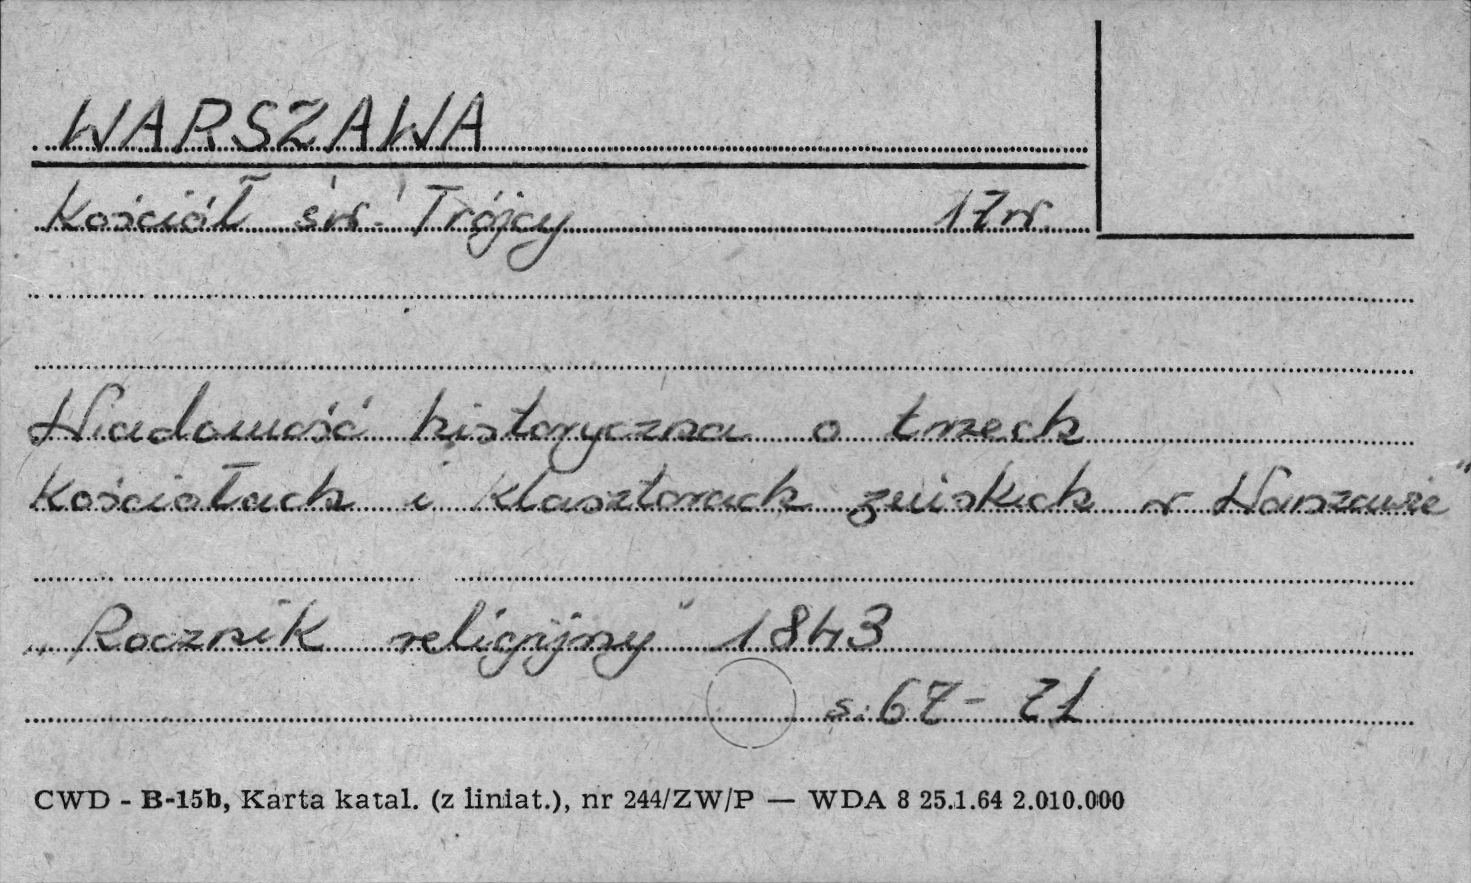 WARSZAWA
Kościół św. Trójcy 17 w.
Wiadomość historyczna o trzech
Kościołach i Klasztorach żeńskich w Warszawie"
„Rocznik religijny" 1843
s. 67-71
CWD - B-15b, Karta katal. (z liniat.), nr 244/ZW/P — WDA 8 25.1.64 2.010.000